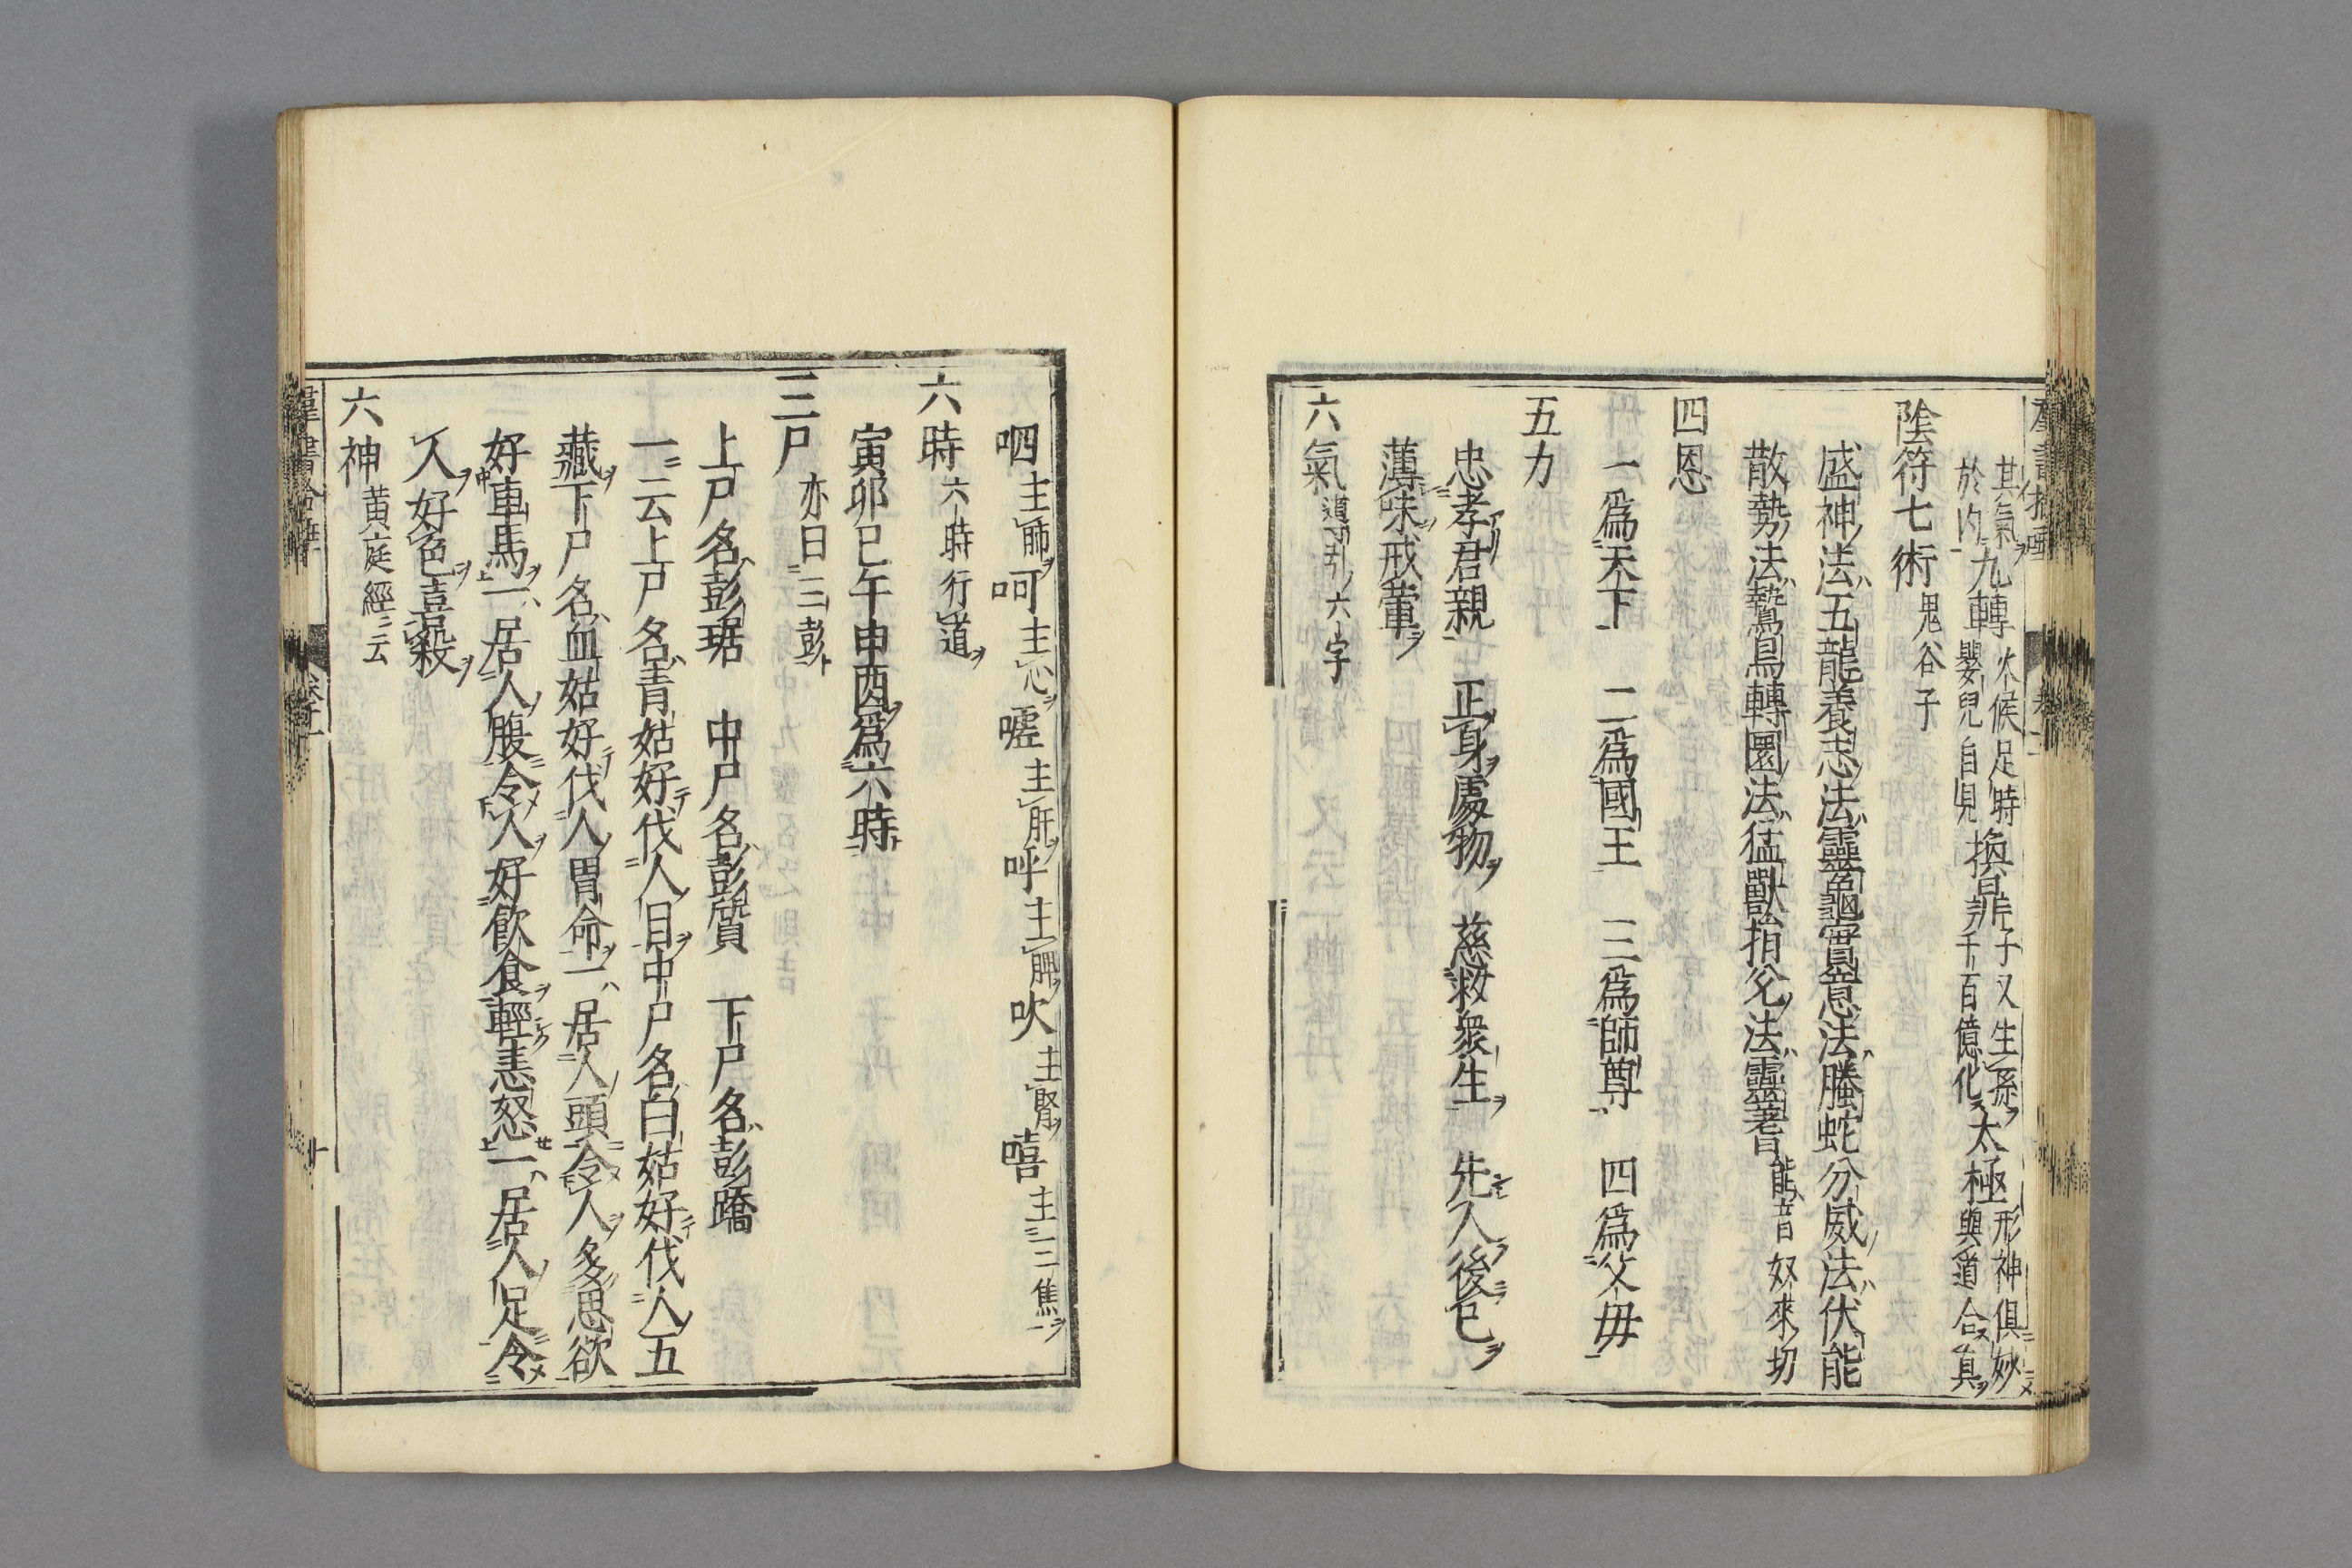 其氣九轉火候足時換鼎子又生孫太極形神俱妙
於內嬰兒自見分千百億化與道合真
陰符七術鬼谷子
盛神法五龍養志法靈龜實意法螣蛇分威法伏能
散勢法鷙鳥轉圜法猛獸損兊法靈蓍能音奴來切
四恩
一爲天下 二爲國王 三爲師尊 四爲父母
五力
忠孝君親 正身處物 慈救衆生 先人後己
薄味戒葷
六氣道引六字
呬主肺呵主心噓主肝呼主脾吹主腎嘻主三焦
六時六時行道
寅卯巳午申酉爲六時
三尸亦曰三彭
上尸名彭琚 中尸名彭質 下尸名彭蹻
一云上尸名青姑好伐人目中尸名白姑好伐人五
藏下尸名血姑好伐人胃命一居人頭令人多思欲
好車馬一居人腹令人好飲食輕恚怒一居人足令
人好色喜殺
六神黄庭經云